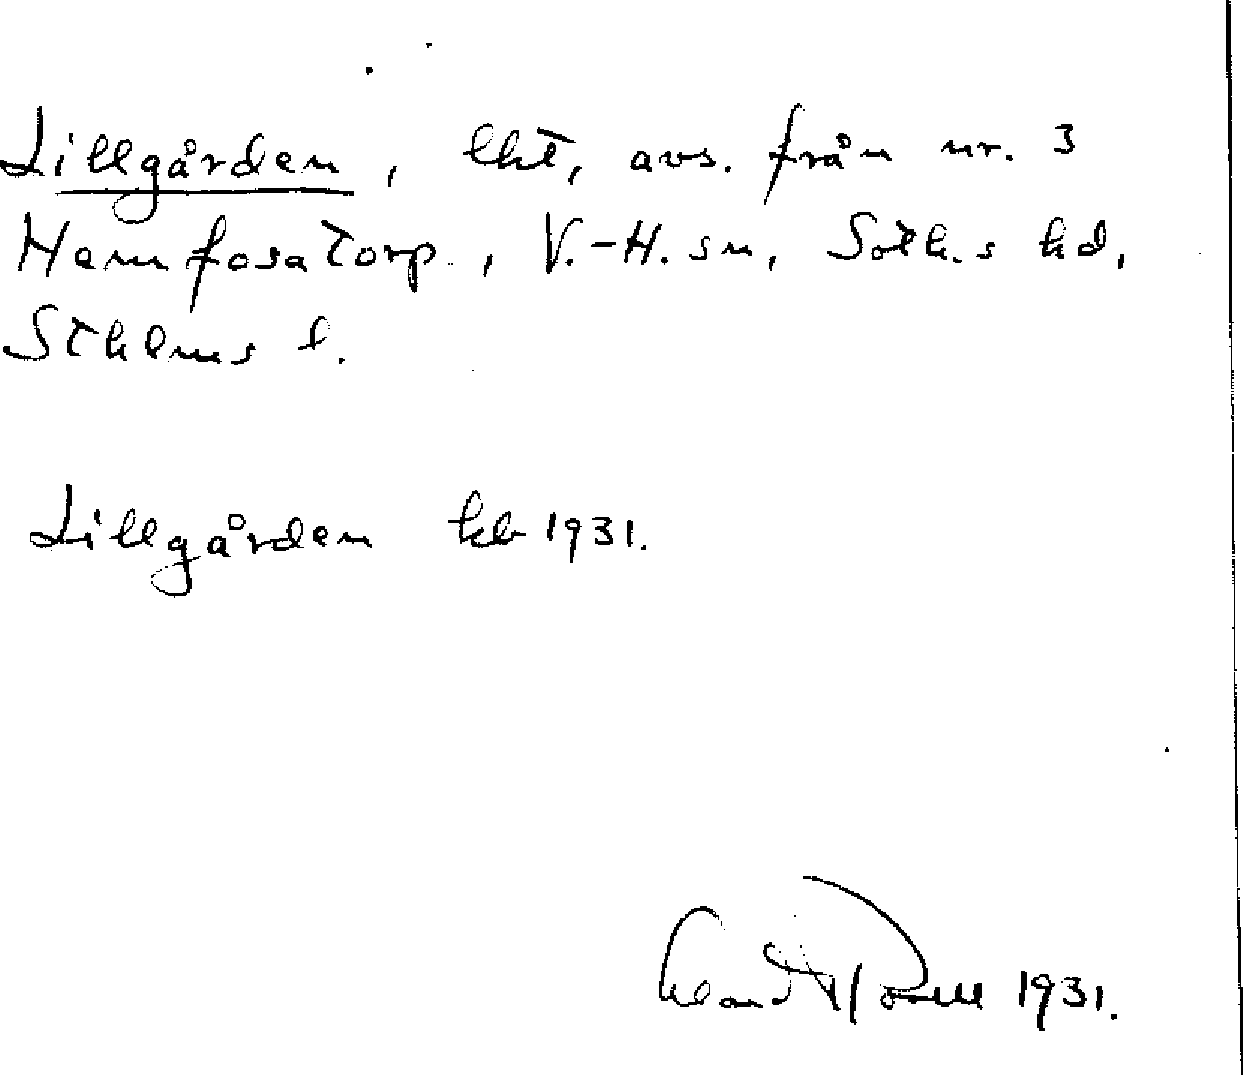 Lillgården, lht, avs. från nr. 3
Hamfosatorp, V.-H. sn, Soth.s hd,
Sthlms l.
Lillgården kb 1931.
1931.